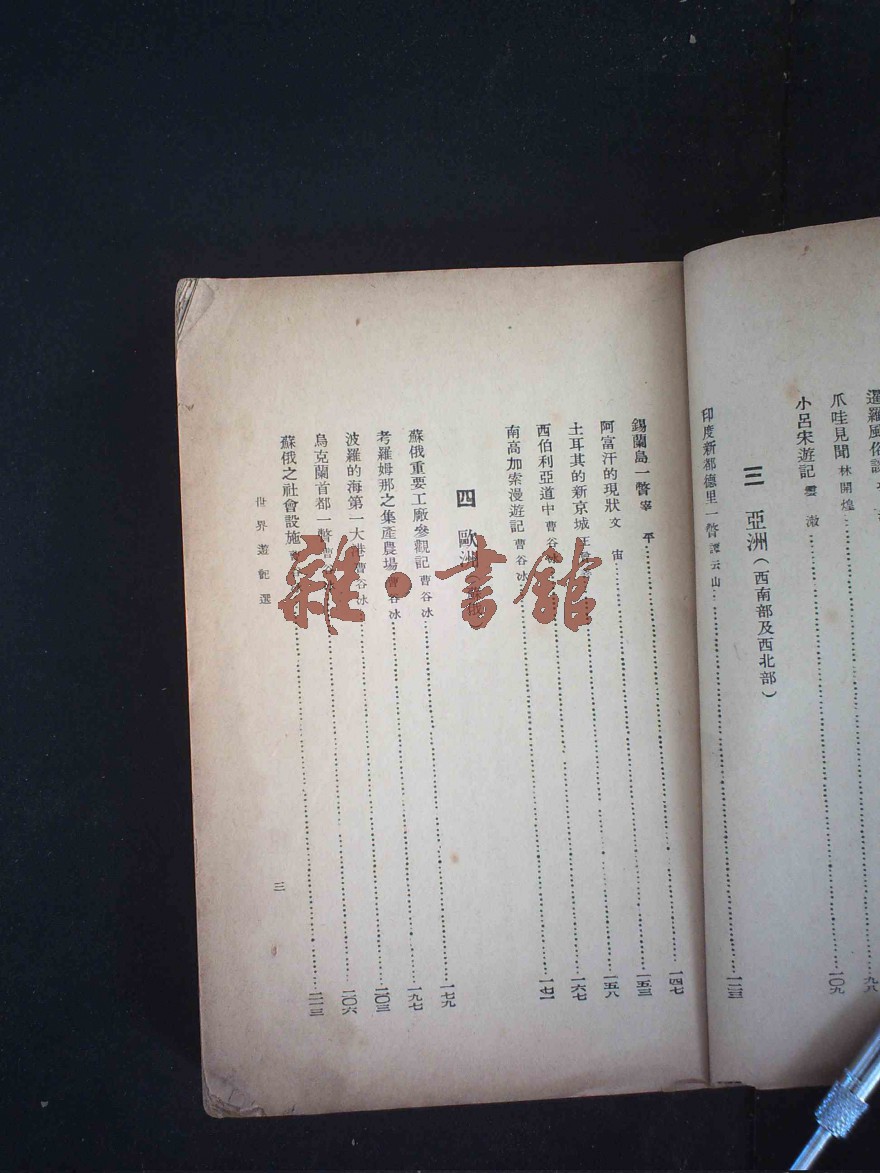 爪哇見聞 林開煌……九八
小呂宋遊記 雲澂……一〇九
三 亞洲（西南部及西北部）
印度新都德里一瞥 譚云山……一二三
錫蘭島一瞥 寧平……一四七
阿富汗的現狀 文宙……一五三
土耳其的新京城……一五八
西伯利亞道中 曹谷冰……一六七
南高加索漫遊記 曹谷冰……一七一
四 歐洲
蘇俄重要工廠參觀記 曹谷冰……一七九
考羅姆那之集產農場 曹谷冰……一九七
波羅的海第一大港 曹谷冰……二〇三
烏克蘭首都一瞥 曹谷冰……二〇六
蘇俄之社會設施……二一三
世界遊記選
三
雜·書館